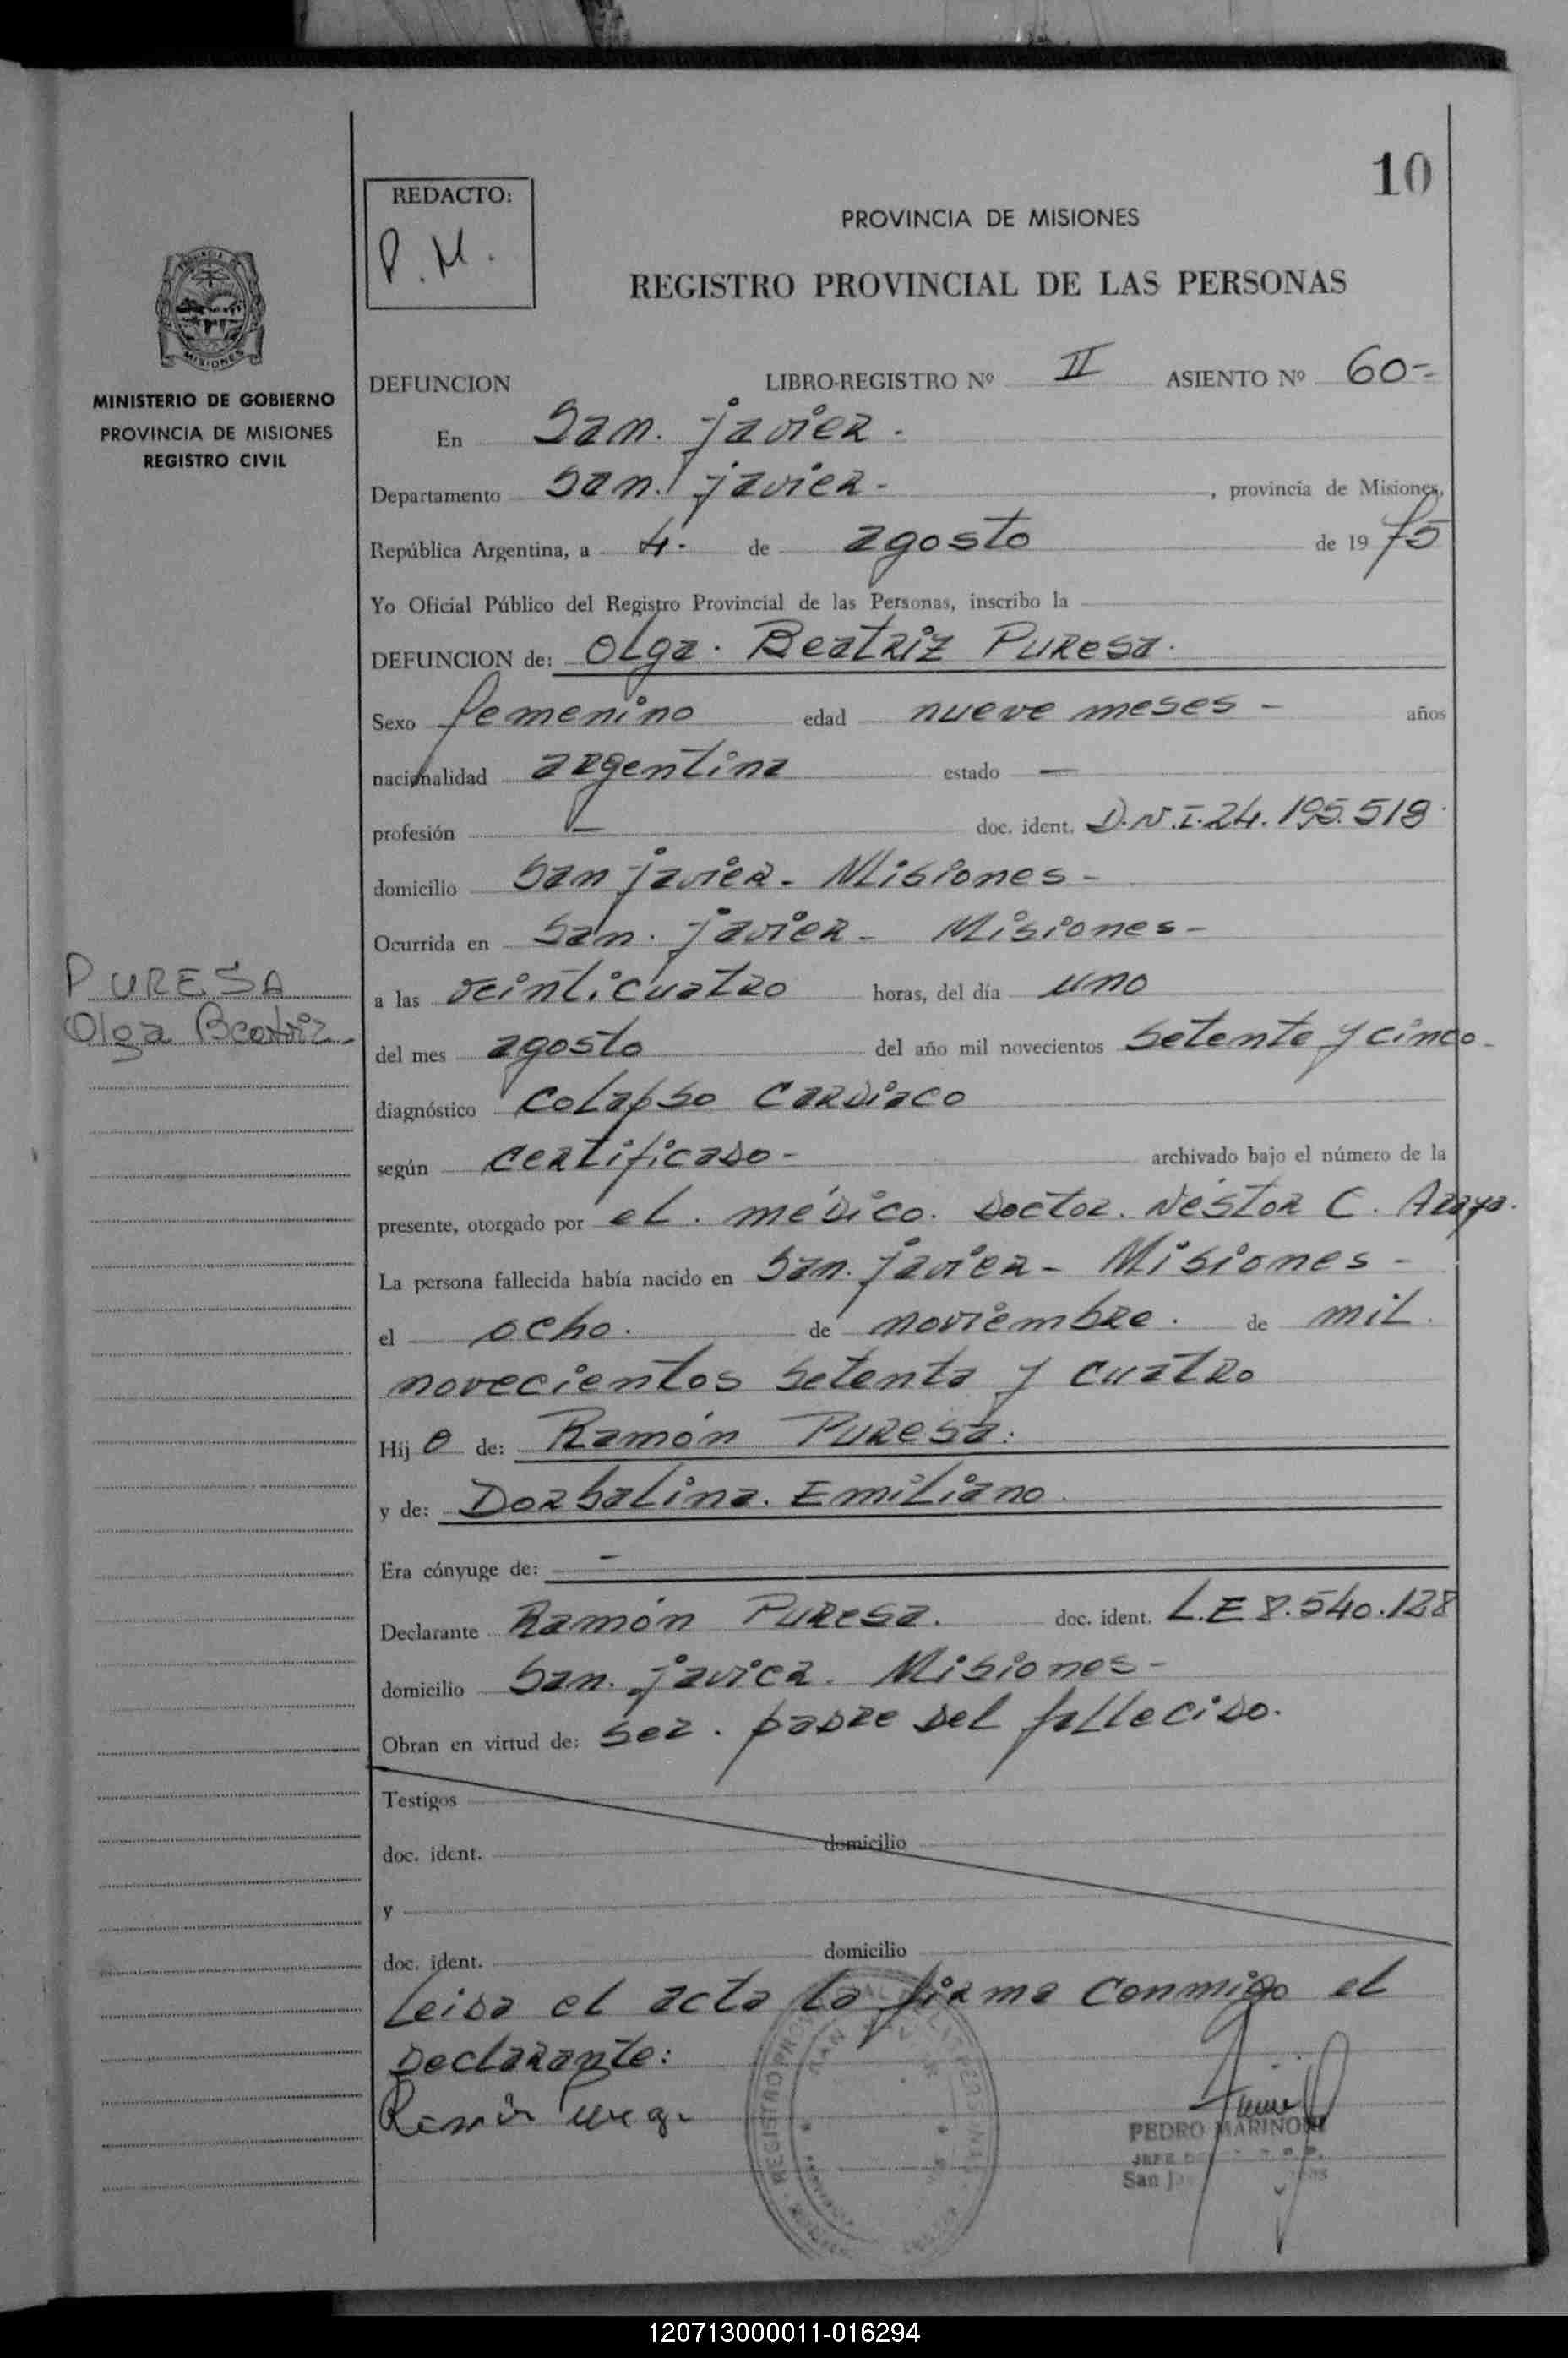 10
REDACTO:
P. M.
PROVINCIA DE MISIONES
REGISTRO PROVINCIAL DE LAS PERSONAS
MISIONES
MINISTERIO DE GOBIERNO
PROVINCIA DE MISIONES
REGISTRO CIVIL
DEFUNCION LIBRO-REGISTRO Nº II ASIENTO Nº 60-
En San. javier.
Departamento San. javier. , provincia de Misiones,
República Argentina, a 4. de agosto de 19 75
Yo Oficial Público del Registro Provincial de las Personas, inscribo la
DEFUNCION de: Olga. Beatriz Puresa.
Sexo femenino edad nueve meses - años
nacionalidad argentina estado —
profesión — doc. ident. D.N.I. 24.195.519.
domicilio San javier. Misiones-
Ocurrida en San. javier- Misiones-
PURESA
Olga Beatriz.
a las veinticuatro horas, del día uno
del mes agosto del año mil novecientos setenta y cinco-
diagnóstico colapso cardiaco
según certificado- archivado bajo el número de la
presente, otorgado por el. médico. Doctor. Néstor C. Araya.
La persona fallecida había nacido en San. javier- Misiones-
el ocho. de noviembre. de mil.
novecientos setenta y cuatro
Hij a de: Ramón Puresa.
y de: Dorbalina. Emiliano.
Era cónyuge de: —
Declarante Ramón Puresa. doc. ident. L.E 8.540.128
domicilio San. javier. Misiones-
Obran en virtud de: ser. padre del fallecido.
Testigos
doc. ident. domicilio
y
doc. ident. domicilio
Leida el acta la firma conmigo el
Declarante:
PEDRO MARINONI
San
120713000011-016294